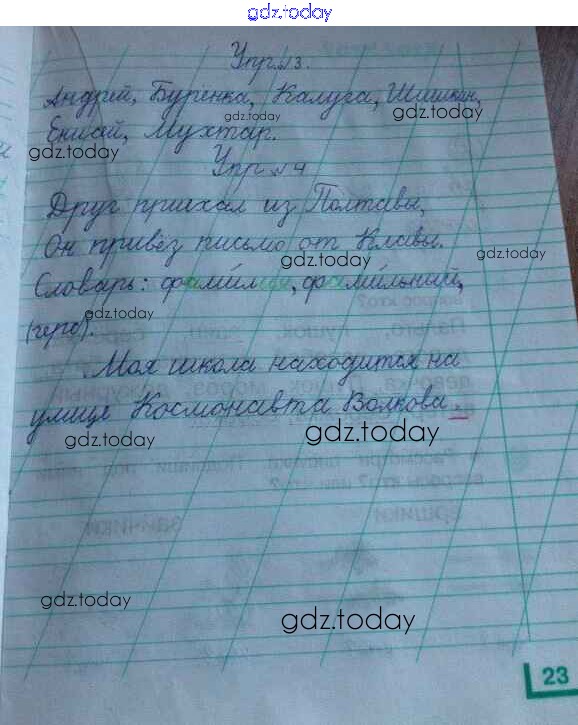 gdz.today
Упр.№3.
Андрей, Буренка, Калуга, Шишкин,
gdz.today gdz.today
Енисай, Мухтар.
gdz.today
Упр.№4
Друг приехал из Полтавы,
Он привёз письмо от Клавы.
gdz.today gdz.today
Словарь: фамилия, фамильный,
gdz.today
(герб).
Моя школа находится на
улице Космонавта Волкова.
gdz.today gdz.today
gdz.today gdz.today
23